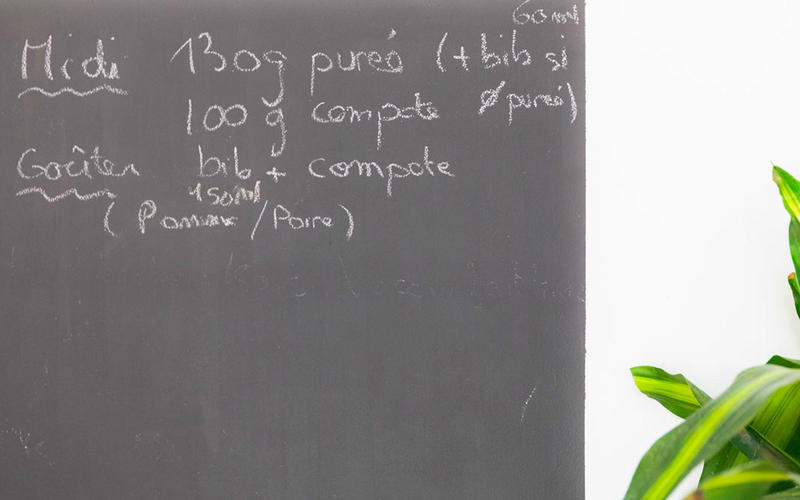 60 ml
Midi 130g pureé (+ bib si
100 g compote Ø pureé)
Goûter bib + compote
150ml
(Pomme / Poire)